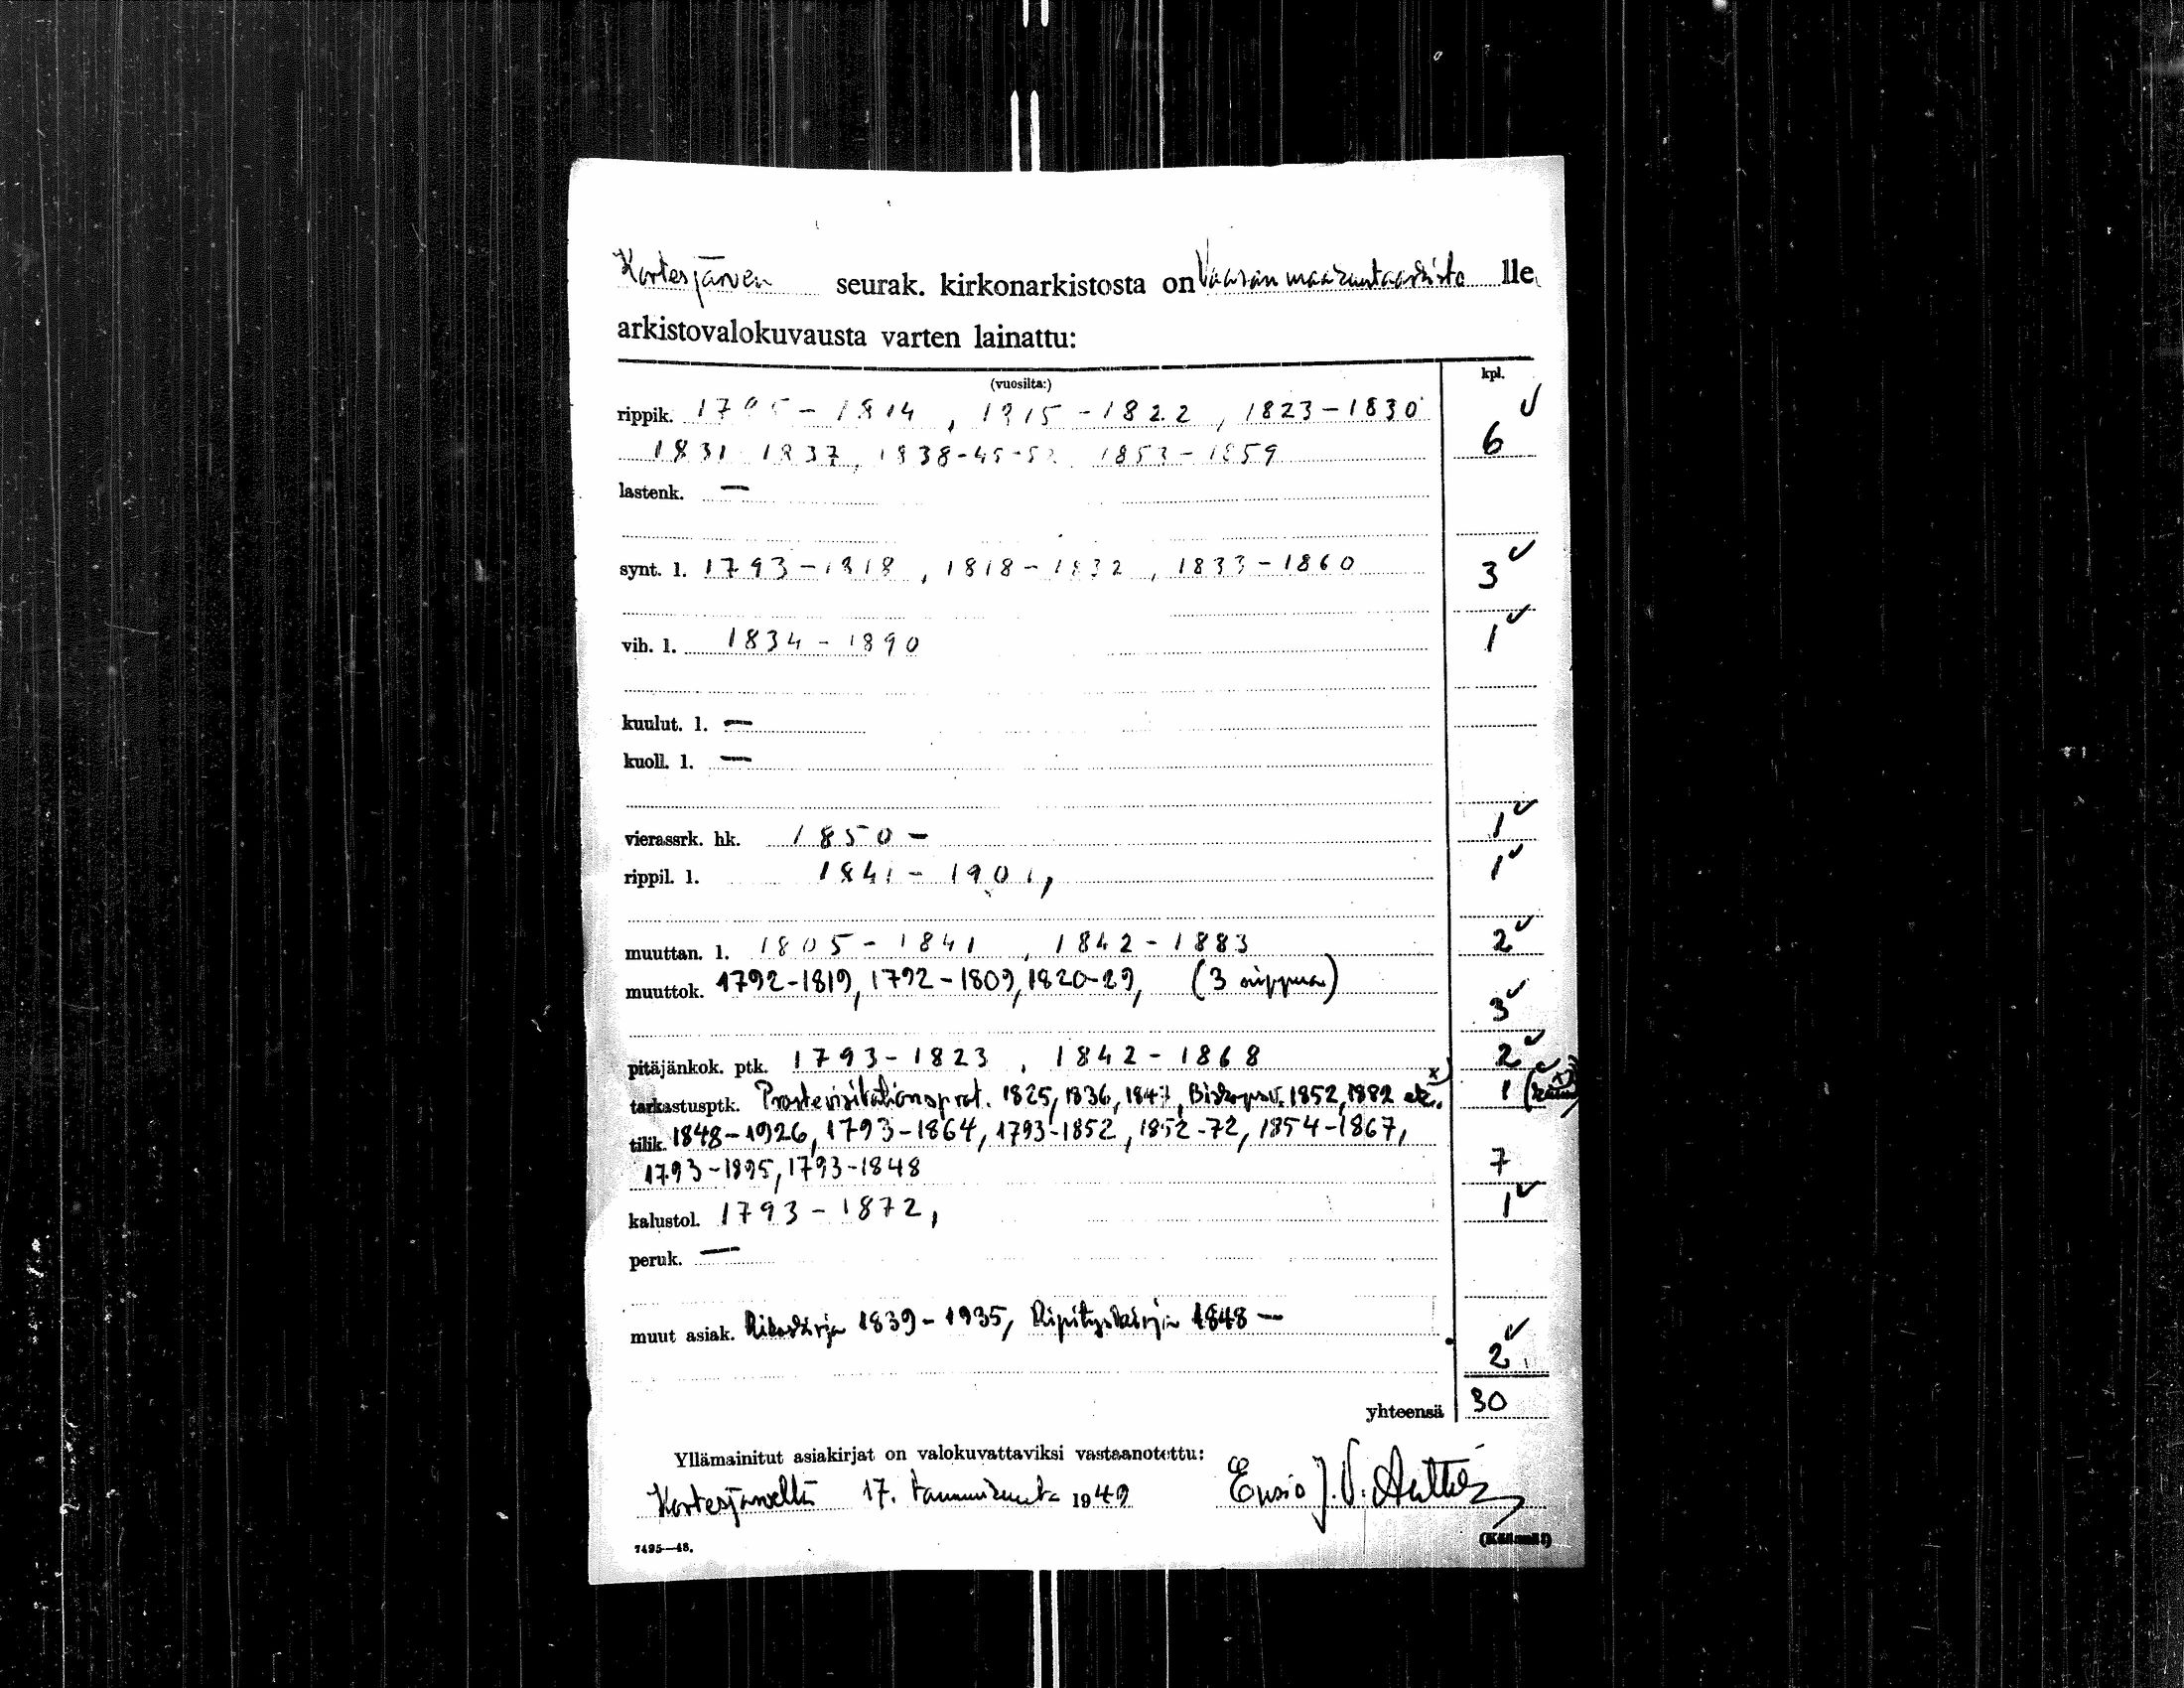 Kortesjärven seurak. kirkonarkistosta on Vaasan maakuntaarkisto lle
arkistovalokuvausta varten lainattu:
(vuosilta:) kpl.
rippik. 1795 – 1814, 1815 – 1822, 1823 – 1830 ✓
1831 1837, 1838-45-52 1853 – 1859 6
lastenk. —
synt. l. 1793 – 1818, 1818 – 1832, 1833 – 1860 3 ✓
vih. l. 1834 – 1890 1 ✓
kuulut. l. —
kuoll. l. —
vierassrk. hk. 1850 – 1 ✓
rippil. l. 1841 – 1901, 1 ✓
muuttan. l. 1805 – 1841, 1842 – 1883 2 ✓
muuttok. 1792-1819, 1792-1809, 1820-29, (3 nippua) 3 ✓
pitäjänkok. ptk. 1793 – 1823, 1842 – 1868 2 ✓
tarkastusptk. Prostevisitationsprot. 1825, 1836, 1847, Biskopsv. 1852, 1882 etc. x) 1
tilik. 1848-1926, 1793-1864, 1793-1852, 1852-72, 1854-1867,
1793-1895, 1793-1848 7
kalustol. 1793 – 1872, 1 ✓
peruk. —
muut asiak. Rikoskirja 1839 – 1935, Ripityskirja 1848 — 2 ✓
yhteensä 30
Yllämainitut asiakirjat on valokuvattaviksi vastaanotettu:
Kortesjärvellä 17. tammikuuta 1949 Ensio J. V.
7495—48.